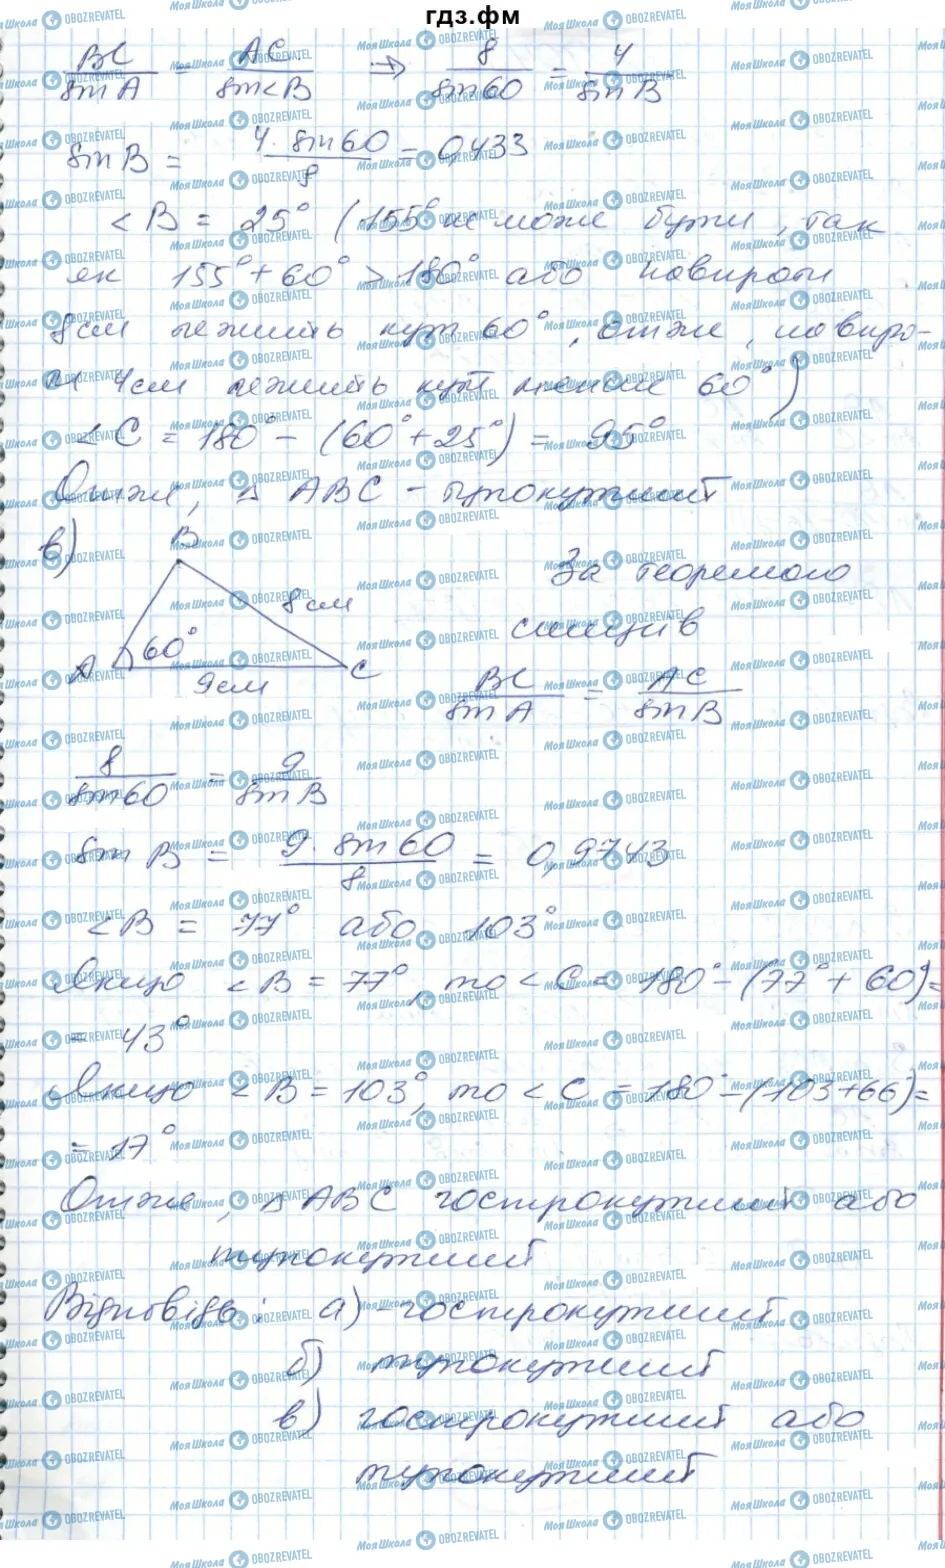 гдз.фм
BC/sin A = AC/sin<B => 8/sin60 = 4/sin B
sin B = 4·sin60/8 = 0,433
<B = 25° (155° не може бути, так
як 155° + 60° > 180° або навпроти
8см лежить кут 60°, отже, навпро-
ти 4см лежить кут менше 60°)
<C = 180° - (60° + 25°) = 95°
Отже, △ABC - тупокутний
в)
B
8см
60°
A
C
9см
За теоремою
синусів
BC/sin A = AC/sin B
8/sin60 = 9/sin B
sin B = 9·sin60/8 = 0,9743
<B = 77° або 103°
Якщо <B = 77°, то <C = 180° - (77° + 60°) =
= 43°
Якщо <B = 103°, то <C = 180° - (103+66°) =
= 17°
Отже, △ABC гострокутний або
тупокутний
Відповідь: а) - гострокутний
б) тупокутний
в) гострокутний або
тупокутний
Моя Школа OBOZREVATEL